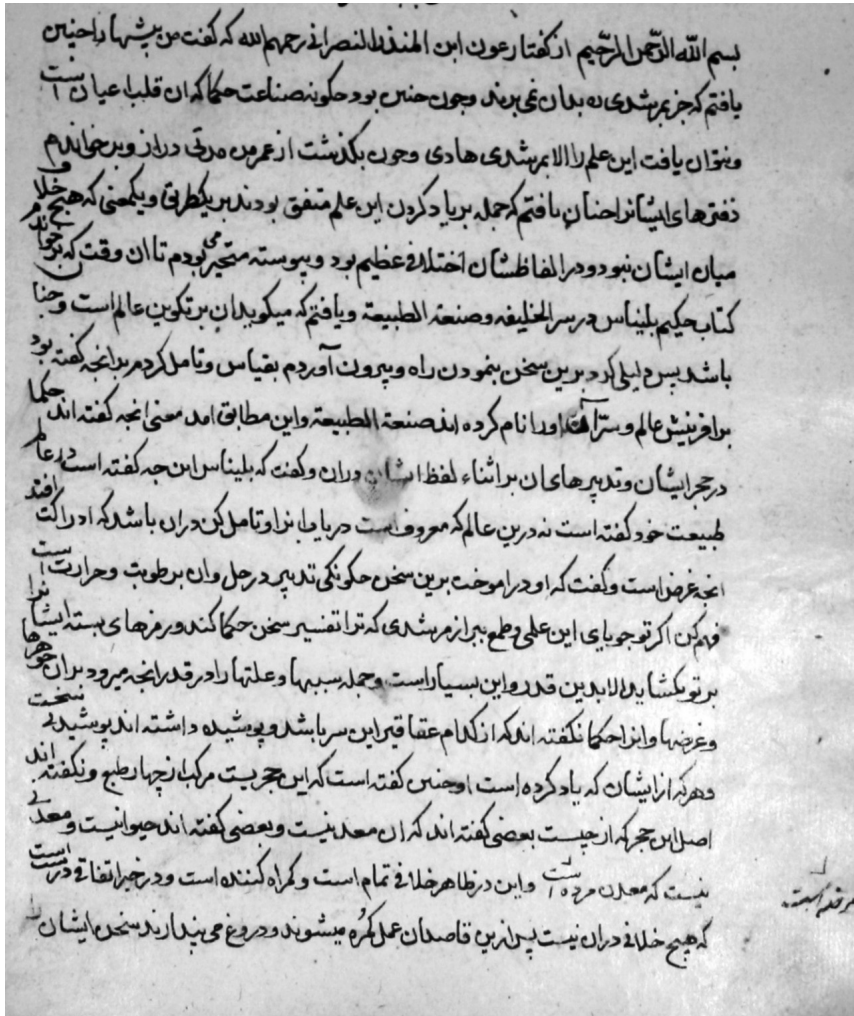 بسم الله الرحمن الرحیم از کفتار عون ابن المنذر النصرانی رحمهم الله که کفت من پیشهارا چنین
یافتم که جز بمرشدی ره بدان نمی برند و چون چنین بود چکونه صناعت حکما که ان قلب اعیان است
و نتوان یافت این علم را الا بمرشدی هادی و چون بکذشت از عمر من مدتی دراز و برخواندم
دفترهای ایشانرا چنان یافتم که جمله بر یاد کردن این علم متفق بودند بر یکطریق و یکمعنی که هیچ خلاف
میان ایشان نبود و در الفاظشان اختلافی عظیم بود و پیوسته متحیر می بودم تا ان وقت که برخواندم
کتاب حکیم بلیناس در سر الخلیفه و صنعة الطبیعة و یافتم که میکوید ان بر تکوین عالم است و چنان
باشد پس دلیلی کرد برین سخن بنمودن راه و بیرون آوردم بقیاس و تامل کردم بر انچه کفته بود
بر افرینش عالم و سر اورا نام کرده اند صنعة الطبیعة و این مطابق امد معنی انچه کفته اند حکما
در حجر ایشان و تدبیرهای ان بر اثناء لفظ ایشان دران و کفت که بلیناس این چه کفته است در عالم
طبیعت خود کفته است نه درین عالم که معروف است دریاب انرا و تامل کن دران باشد که ادراکت افتد
انچه غرض است و کفت که او در اموخت برین سخن چکونکی تدبیر در حل و ان برطوبت و حرارت است
فهم کن اکر تو جویای این علمی و طمع ببر از مرشدی که ترا تفسیر سخن حکما کند و رمزهای بسته ایشانرا
بر تو بکشاید الا بدین قدر و این بسیار است و جمله سببها و علتها را در قدر انچه میرود بدان جوهرها
و غرضها و انرا حکما نکفته اند که از کدام عقاقیر این سر باشد و پوشیده داشته اند پوشیدنی سخت
و هرکه از ایشان که یاد کرده است او چنین کفته است که این حجریست مرکب از چهار طبع و نکفته اند
اصل این حجر که از چیست بعضی کفته اند که ان معدنیست و بعضی کفته اند حیوانیست و معدنی
نیست که معدن مرده است و این در ظاهر خلافی تمام است و کمراه کننده است و در خبر اتفاقی درست است
که هیچ خلافی دران نیست پس ازین قاصدان عمل کمره میشوند و دروغ می پندارند سخن ایشان را